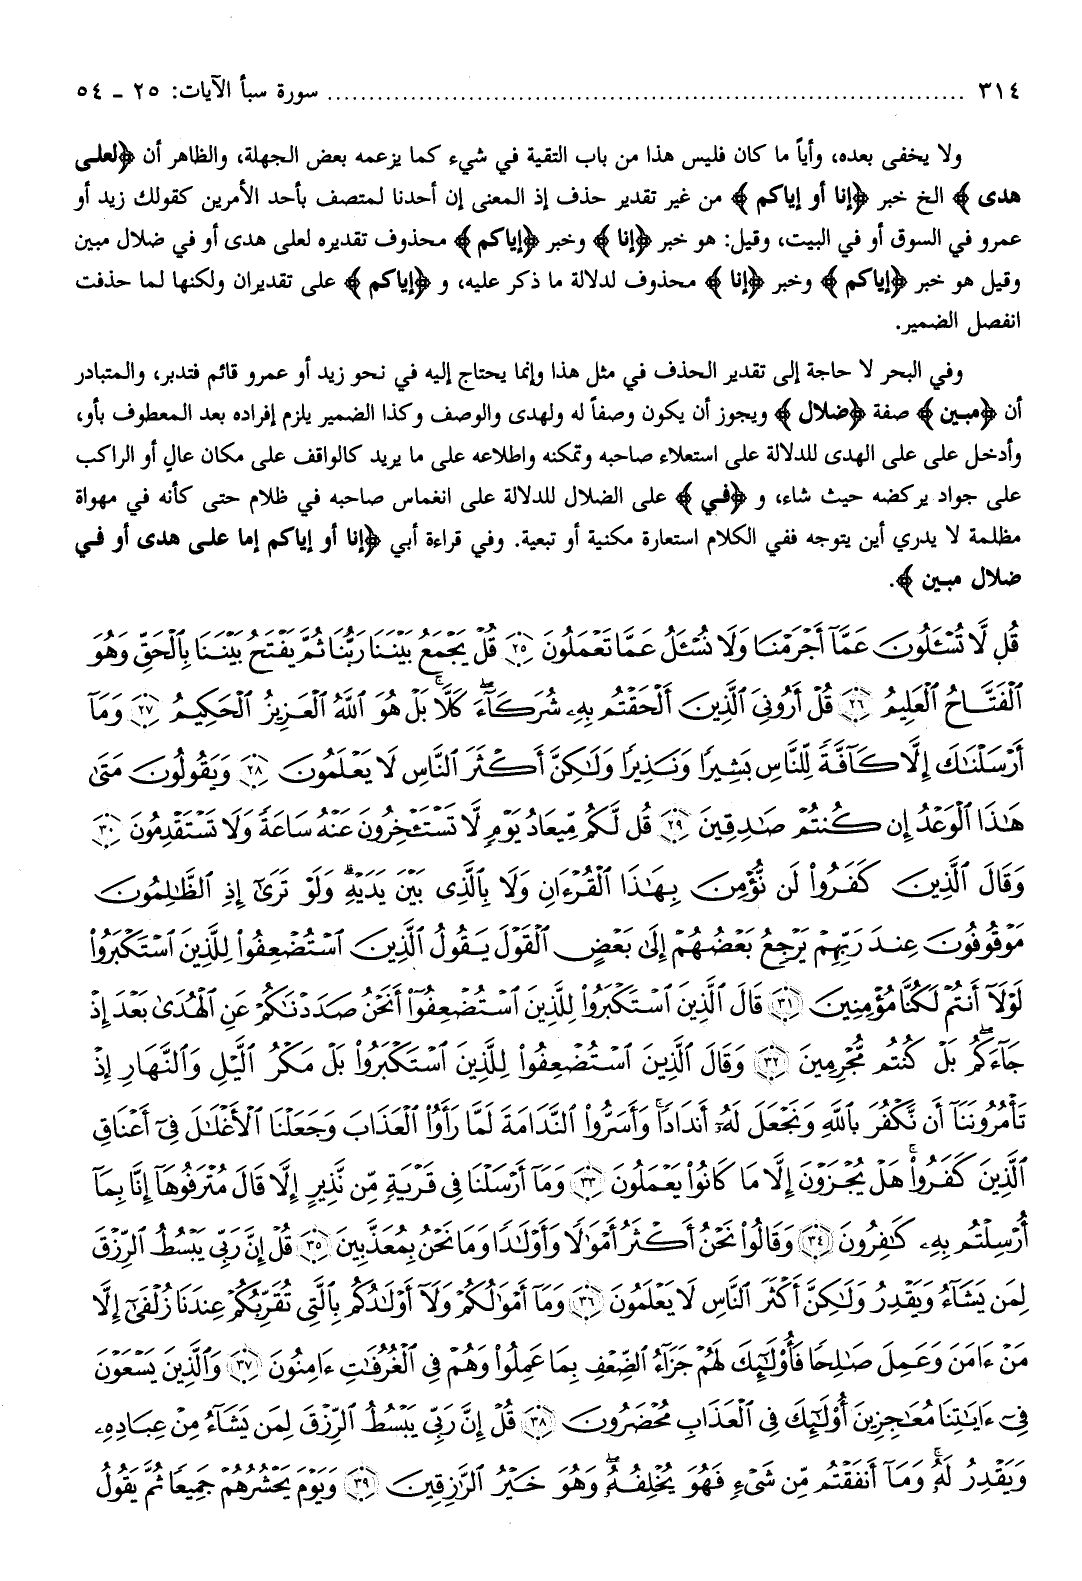 ٣١٤ ........................................................................ سورة سبأ الآيات: ٢٥ ـ ٥٤
ولا يخفى بعده، وأياً ما كان فليس هذا من باب التقية في شيء كما يزعمه بعض الجهلة، والظاهر أن ﴿لعلى
هدى﴾ الخ خبر ﴿إنا أو إياكم﴾ من غير تقدير حذف إذ المعنى إن أحدنا لمتصف بأحد الأمرين كقولك زيد أو
عمرو في السوق أو في البيت، وقيل: هو خبر ﴿إنا﴾ وخبر ﴿إياكم﴾ محذوف تقديره لعلى هدى أو في ضلال مبين
وقيل هو خبر ﴿إياكم﴾ وخبر ﴿إنا﴾ محذوف لدلالة ما ذكر عليه، و ﴿إياكم﴾ على تقديران ولكنها لما حذفت
انفصل الضمير.
وفي البحر لا حاجة إلى تقدير الحذف في مثل هذا وإنما يحتاج إليه في نحو زيد أو عمرو قائم فتدبر، والمتبادر
أن ﴿مبين﴾ صفة ﴿ضلال﴾ ويجوز أن يكون وصفاً له ولهدى والوصف وكذا الضمير يلزم إفراده بعد المعطوف بأو،
وأدخل على على الهدى للدلالة على استعلاء صاحبه وتمكنه واطلاعه على ما يريد كالواقف على مكان عالٍ أو الراكب
على جواد يركضه حيث شاء، و ﴿في﴾ على الضلال للدلالة على انغماس صاحبه في ظلام حتى كأنه في مهواة
مظلمة لا يدري أين يتوجه ففي الكلام استعارة مكنية أو تبعية. وفي قراءة أبي ﴿إنا أو إياكم إما على هدى أو في
ضلال مبين﴾.
قُل لَّا تُسْـَٔلُونَ عَمَّآ أَجْرَمْنَا وَلَا نُسْـَٔلُ عَمَّا تَعْمَلُونَ ﴿٢٥﴾ قُلْ يَجْمَعُ بَيْنَنَا رَبُّنَا ثُمَّ يَفْتَحُ بَيْنَنَا بِٱلْحَقِّ وَهُوَ
ٱلْفَتَّاحُ ٱلْعَلِيمُ ﴿٢٦﴾ قُلْ أَرُونِىَ ٱلَّذِينَ أَلْحَقْتُم بِهِۦ شُرَكَآءَ ۖ كَلَّا ۚ بَلْ هُوَ ٱللَّهُ ٱلْعَزِيزُ ٱلْحَكِيمُ ﴿٢٧﴾ وَمَآ
أَرْسَلْنَٰكَ إِلَّا كَآفَّةً لِّلنَّاسِ بَشِيرًا وَنَذِيرًا وَلَٰكِنَّ أَكْثَرَ ٱلنَّاسِ لَا يَعْلَمُونَ ﴿٢٨﴾ وَيَقُولُونَ مَتَىٰ
هَٰذَا ٱلْوَعْدُ إِن كُنتُمْ صَٰدِقِينَ ﴿٢٩﴾ قُل لَّكُم مِّيعَادُ يَوْمٍ لَّا تَسْتَـْٔخِرُونَ عَنْهُ سَاعَةً وَلَا تَسْتَقْدِمُونَ ﴿٣٠﴾
وَقَالَ ٱلَّذِينَ كَفَرُوا۟ لَن نُّؤْمِنَ بِهَٰذَا ٱلْقُرْءَانِ وَلَا بِٱلَّذِى بَيْنَ يَدَيْهِ ۗ وَلَوْ تَرَىٰٓ إِذِ ٱلظَّٰلِمُونَ
مَوْقُوفُونَ عِندَ رَبِّهِمْ يَرْجِعُ بَعْضُهُمْ إِلَىٰ بَعْضٍ ٱلْقَوْلَ يَقُولُ ٱلَّذِينَ ٱسْتُضْعِفُوا۟ لِلَّذِينَ ٱسْتَكْبَرُوا۟
لَوْلَآ أَنتُمْ لَكُنَّا مُؤْمِنِينَ ﴿٣١﴾ قَالَ ٱلَّذِينَ ٱسْتَكْبَرُوا۟ لِلَّذِينَ ٱسْتُضْعِفُوٓا۟ أَنَحْنُ صَدَدْنَٰكُمْ عَنِ ٱلْهُدَىٰ بَعْدَ إِذْ
جَآءَكُم ۖ بَلْ كُنتُم مُّجْرِمِينَ ﴿٣٢﴾ وَقَالَ ٱلَّذِينَ ٱسْتُضْعِفُوا۟ لِلَّذِينَ ٱسْتَكْبَرُوا۟ بَلْ مَكْرُ ٱلَّيْلِ وَٱلنَّهَارِ إِذْ
تَأْمُرُونَنَآ أَن نَّكْفُرَ بِٱللَّهِ وَنَجْعَلَ لَهُۥٓ أَندَادًا ۚ وَأَسَرُّوا۟ ٱلنَّدَامَةَ لَمَّا رَأَوُا۟ ٱلْعَذَابَ وَجَعَلْنَا ٱلْأَغْلَٰلَ فِىٓ أَعْنَاقِ
ٱلَّذِينَ كَفَرُوا۟ ۚ هَلْ يُجْزَوْنَ إِلَّا مَا كَانُوا۟ يَعْمَلُونَ ﴿٣٣﴾ وَمَآ أَرْسَلْنَا فِى قَرْيَةٍ مِّن نَّذِيرٍ إِلَّا قَالَ مُتْرَفُوهَآ إِنَّا بِمَآ
أُرْسِلْتُم بِهِۦ كَٰفِرُونَ ﴿٣٤﴾ وَقَالُوا۟ نَحْنُ أَكْثَرُ أَمْوَٰلًا وَأَوْلَٰدًا وَمَا نَحْنُ بِمُعَذَّبِينَ ﴿٣٥﴾ قُلْ إِنَّ رَبِّى يَبْسُطُ ٱلرِّزْقَ
لِمَن يَشَآءُ وَيَقْدِرُ وَلَٰكِنَّ أَكْثَرَ ٱلنَّاسِ لَا يَعْلَمُونَ ﴿٣٦﴾ وَمَآ أَمْوَٰلُكُمْ وَلَآ أَوْلَٰدُكُم بِٱلَّتِى تُقَرِّبُكُمْ عِندَنَا زُلْفَىٰٓ إِلَّا
مَنْ ءَامَنَ وَعَمِلَ صَٰلِحًا فَأُو۟لَٰٓئِكَ لَهُمْ جَزَآءُ ٱلضِّعْفِ بِمَا عَمِلُوا۟ وَهُمْ فِى ٱلْغُرُفَٰتِ ءَامِنُونَ ﴿٣٧﴾ وَٱلَّذِينَ يَسْعَوْنَ
فِىٓ ءَايَٰتِنَا مُعَٰجِزِينَ أُو۟لَٰٓئِكَ فِى ٱلْعَذَابِ مُحْضَرُونَ ﴿٣٨﴾ قُلْ إِنَّ رَبِّى يَبْسُطُ ٱلرِّزْقَ لِمَن يَشَآءُ مِنْ عِبَادِهِۦ
وَيَقْدِرُ لَهُۥ ۚ وَمَآ أَنفَقْتُم مِّن شَىْءٍ فَهُوَ يُخْلِفُهُۥ ۖ وَهُوَ خَيْرُ ٱلرَّٰزِقِينَ ﴿٣٩﴾ وَيَوْمَ يَحْشُرُهُمْ جَمِيعًا ثُمَّ يَقُولُ